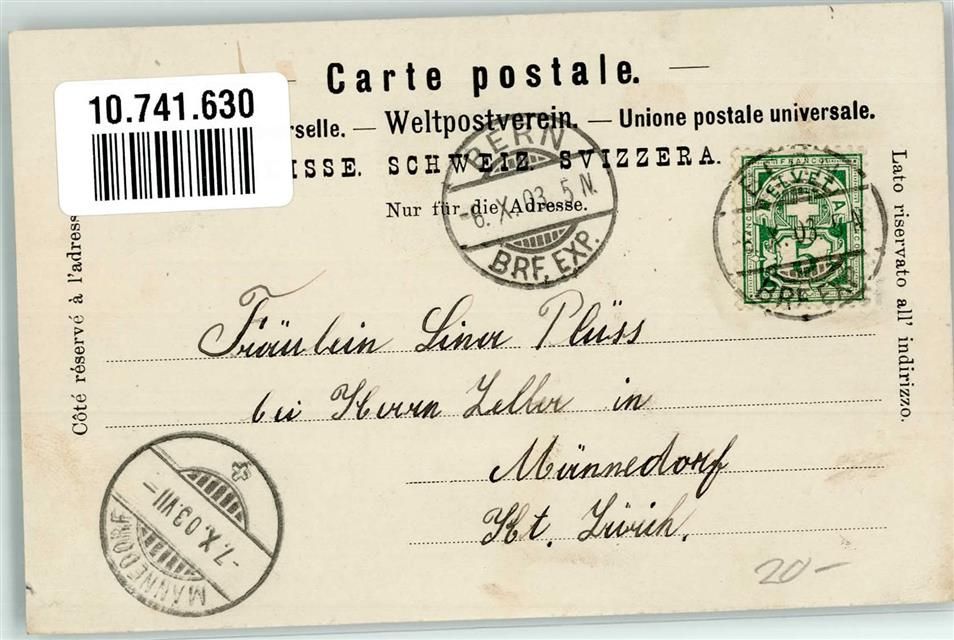 Carte postale.
10.741.630
rselle. — Weltpostverein. — Unione postale universale.
ISSE. SCHWEIZ. SVIZZERA.
Nur für die Adresse.
Côté réservé à l'adresse
Lato riservato all' indirizzo.
BERN
-6. X. 03. 5 N.
BRF. EXP.
FRANCO
HELVETIA
5
X. 03. N.
BRF. EXP.
Fräulein Lina Plüss
bei Herrn Zeller in
Männedorf
Kt. Zürich.
MÄNNEDORF
-7. X. 03 VII-
20-